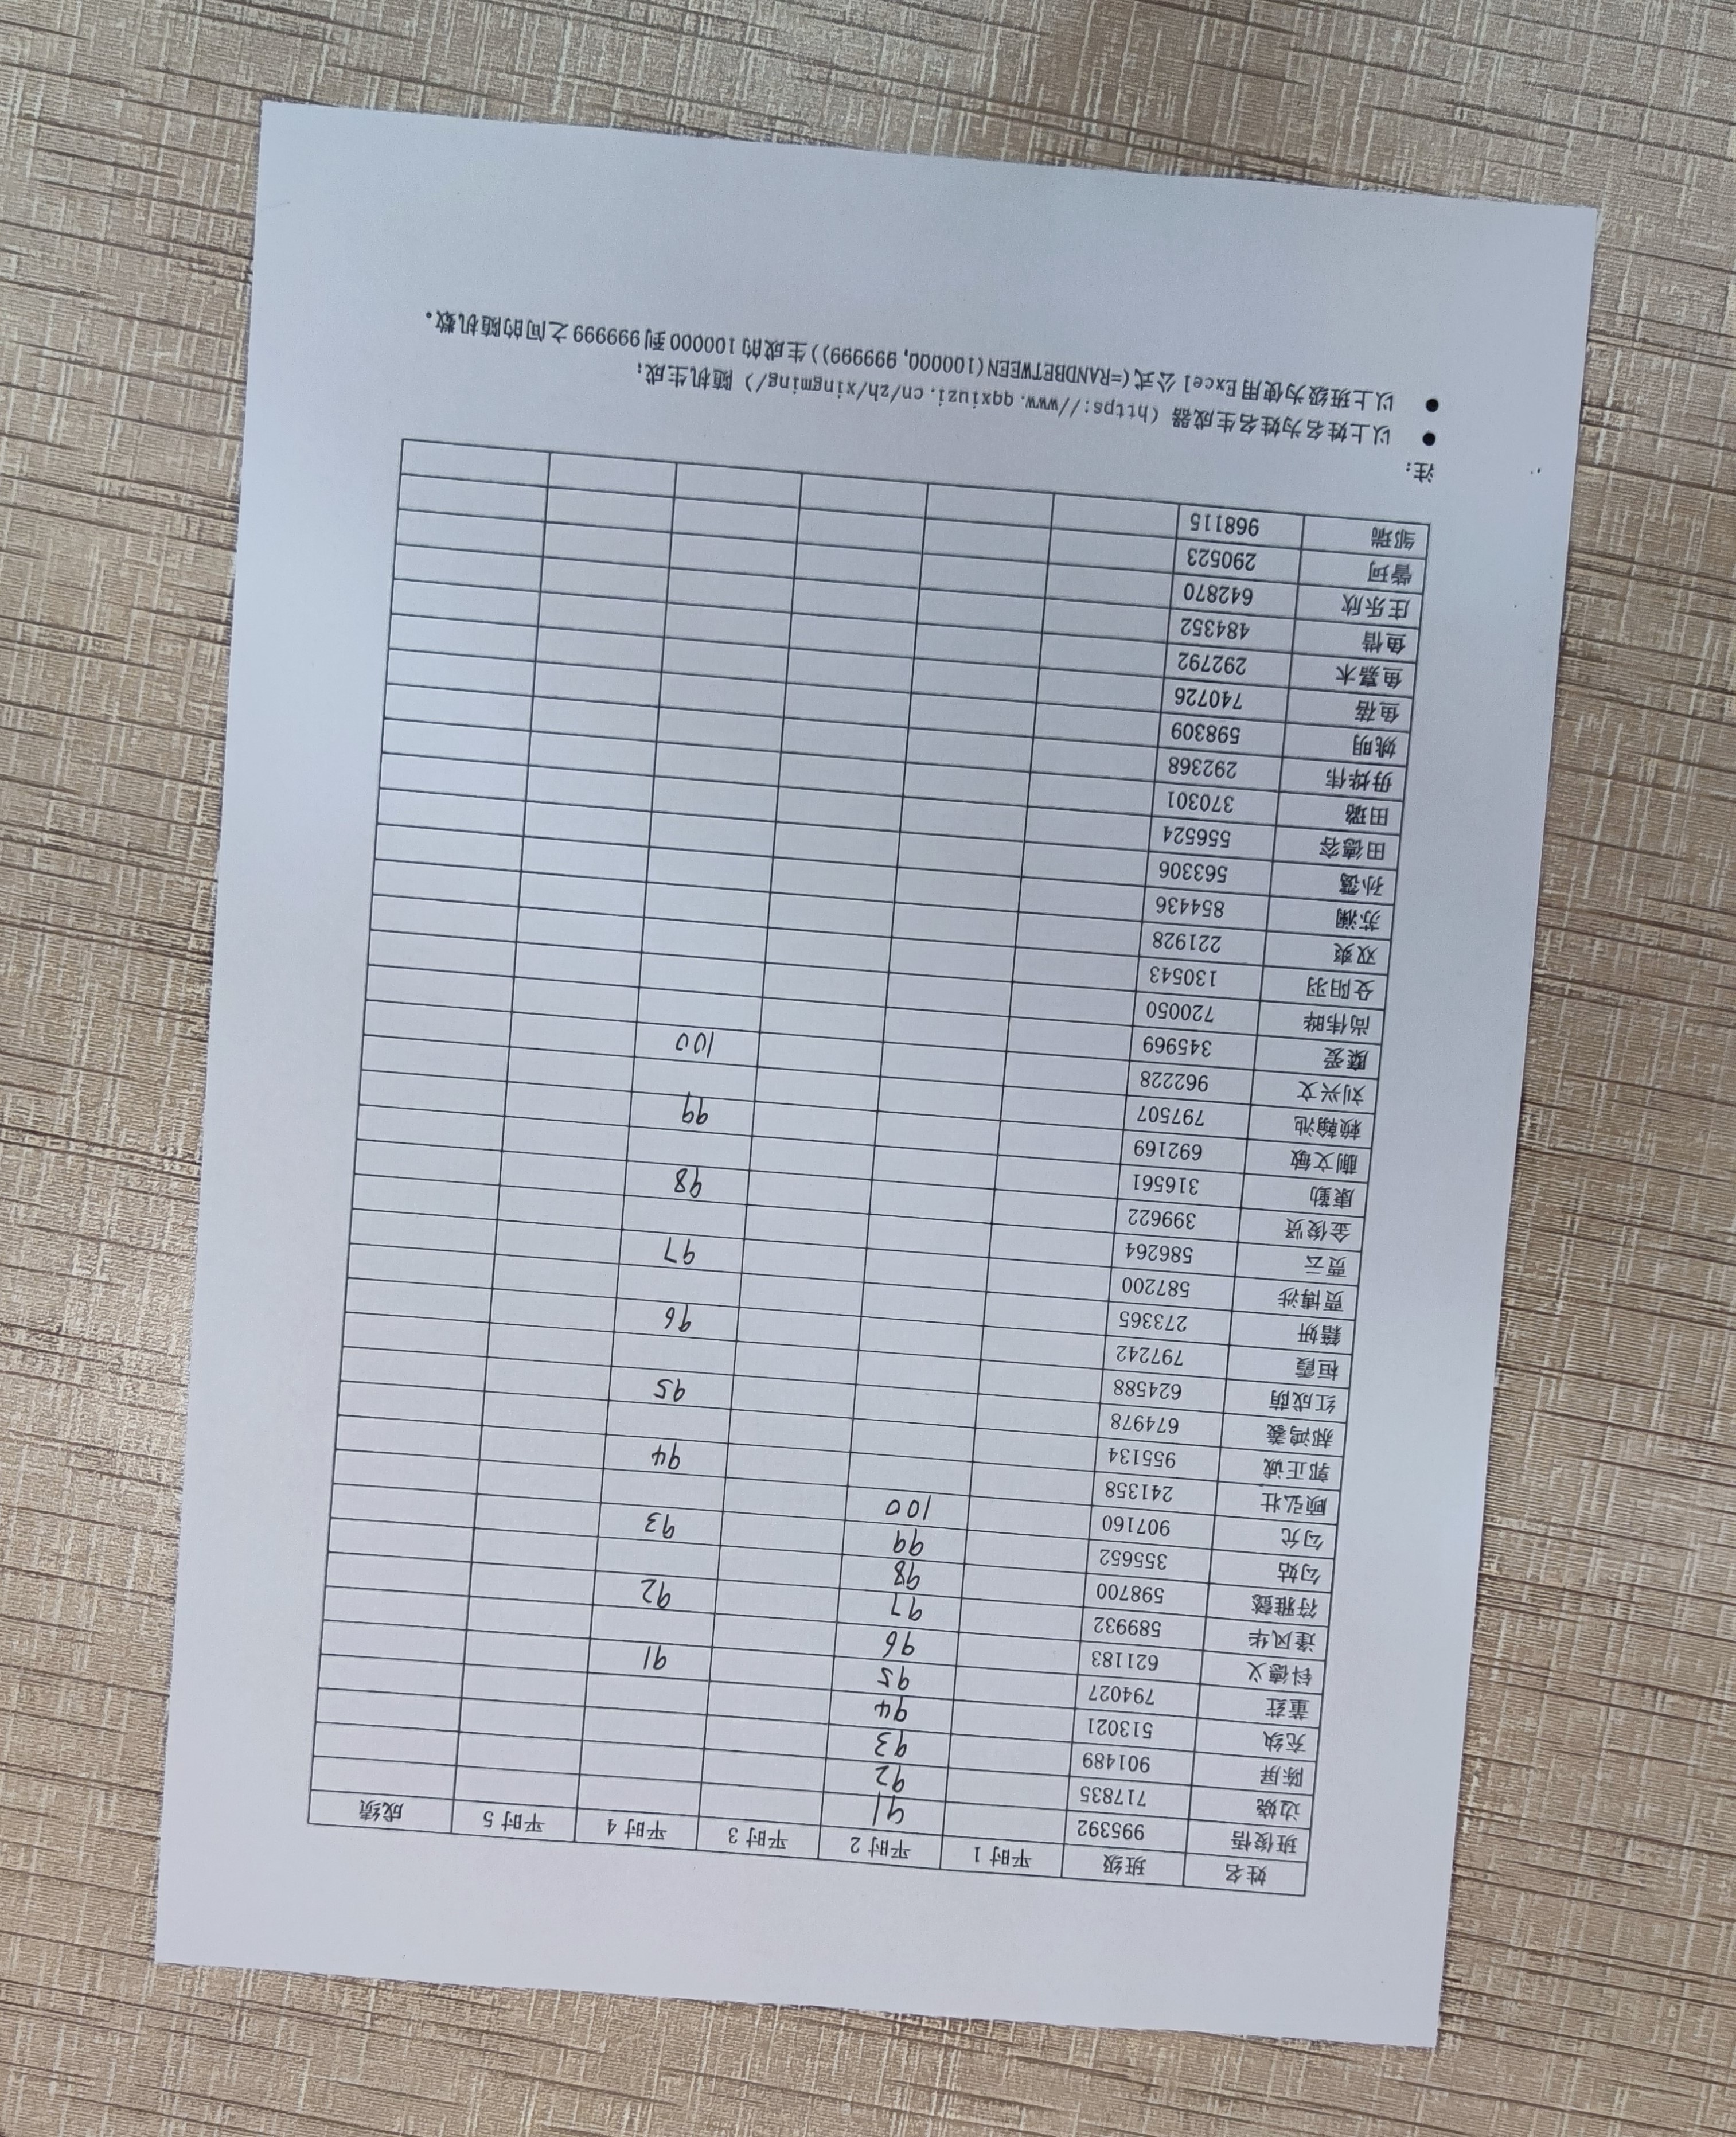 姓名 班级 平时1 平时2 平时3 平时4 平时5 成绩
班俊悟 995392 91
边娆 717835 92
陈屏 901489 93
充纨 513021 94
董荭 794027 95 91
钭德义 621183 96
逄风华 589932 97 92
符雅懿 598700 98
勾姑 355652 99 93
勾允 907160 100
顾弘壮 241358 94
郭正诚 955134
郝鸿羲 674978 95
红成荫 624588
桓霞 797242 96
籍妍 273365
贾博涉 587200 97
贾云 586264
金俊贤 399622 98
康勤 316561
蒯文敏 692169 99
赖翰池 797507
刘兴文 962228 100
麋爰 345969
尚伟晔 720050
殳阳羽 130543
双爽 221928
苏澜 854436
孙霭 563306
田德容 556524
田璐 370301
毋烨伟 292368
姚明 598309
鱼蓓 740726
鱼嘉木 292792
鱼倩 484352
庄乐欣 642870
訾珂 290523
邹瑞 968115
注：
● 以上姓名为姓名生成器（https://www.qqxiuzi.cn/zh/xingming/）随机生成；
● 以上班级为使用Excel公式(=RANDBETWEEN(100000,999999))生成的100000到999999之间的随机数。